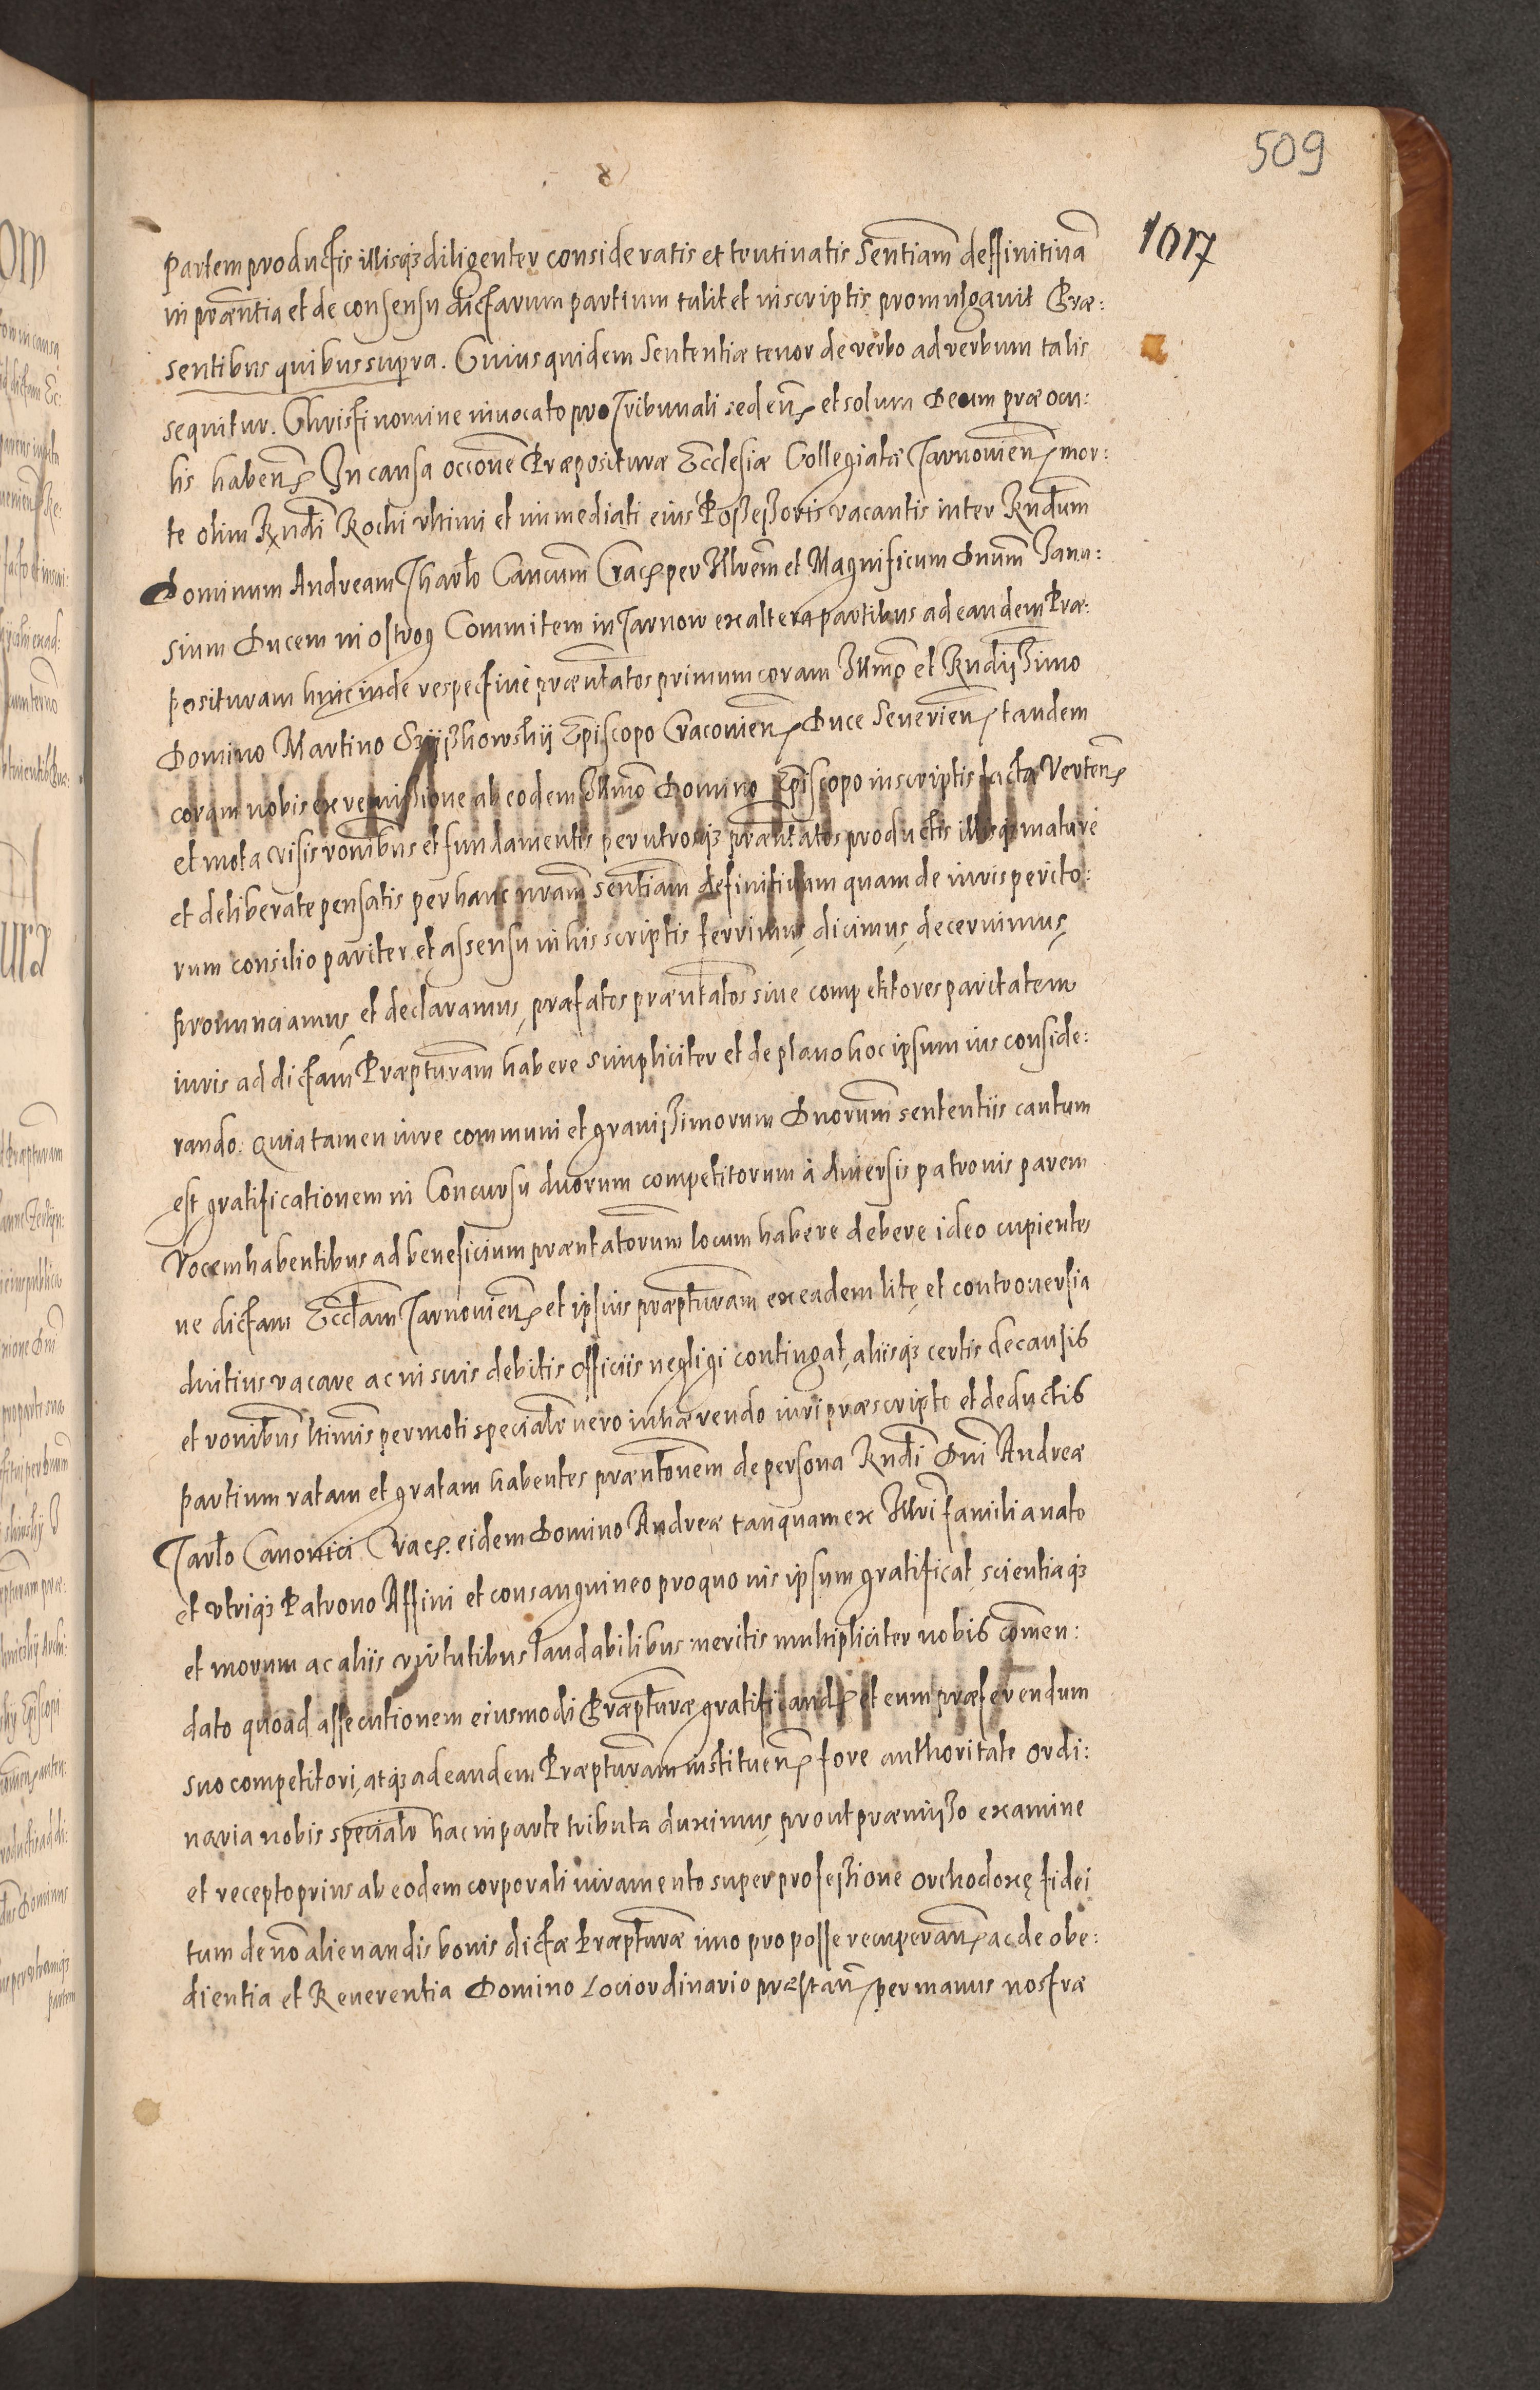 509
1017
partem productis illisq₃ diligenter consideratis et trutinatis Sentiam deffinitiua
in præntia et de consensu dictarum partium tulit et in scriptis promulgauit Præ:
sentibus quibus supra. Cuius quidem Sententiæ tenor de verbo ad verbum talis
sequitur. Christi nomine inuocato pro Tribunali seden et solum Deum præ ocu:
lis haben In causa occone Præpositurae Ecclesiæ Collegiatæ Tarnouien mor:
te olim Rndi Rochi vltimi et immediati eius Poßeßoris vacantis inter Rndum
Dominum Andream Tharlo Cancum Crac per Illrem et Magnificum Dnum Janu:
sium Ducem in Ostrog Commitem in Tarnow ex altera partibus ad eandem Præ:
posituram hincinde respectiue præntatos primum coram Illmo et Rndißimo
Domino Martino Szyßkowskij Episcopo Cracouien Duce Seuerien tandem
coram nobis ex remissione ab eodem Illmo Domino Episcopo in scriptis facta Verten
et mota visis ronibus et fundamentis per utrosq₃ præntatos productis illisq₃ mature
et deliberate pensatis per hanc nram sentiam definitiuam quam de iurisperito:
rum consilio pariter et assensu in his scriptis ferrimus, dicimus, decernimus,
pronunciamus, et declaramus, præfatos præntatos siue competitores paritatem
iuris ad dictam Præpturam habere simpliciter et de plano hoc ipsum ius conside:
rando. Quia tamen iure communi et grauißimorum Dnorum sententiis cautum
est gratificationem in Concursu duorum competitorum à diuersis patronis parem
Vocem habentibus ad beneficium præntatorum locum habere debere ideo cupientes
ne dictam Ecclam Tarnouien et ipsius præpturam ex eadem lite et controuersia
diutius vacare ac in suis debitis officiis negligi contingat, aliisq₃ certis de causis
et ronibus ltimis permoti specialr uero inhærendo iuri præscripto et deductis
partium ratam et gratam habentes præntonem de persona Rndi Dni Andreæ
Tarlo Canonici Crac. eidem Domino Andreæ tanquam ex Illri familia nato
et vtriq₃ Patrono Affini et consanguineo pro quo ius ipsum gratificat, scientiaq₃
et morum ac aliis virtutibus laudabilibus meritis multipliciter nobis comen:
dato quoad assecutionem eiusmodi Præpturæ gratificand et eum præferendum
suo competitori, atq₃ ad eandem Præpturam instituen fore authoritate ordi:
naria nobis specialr hac in parte tributa duximus, prout præmißo examine
et recepto prius ab eodem corporali iuramento super profeßione orthodoxę fidei
tum de no alienandis bonis dictæ Præpturæ imo pro posse recuperan ac de obe:
dientia et Reuerentia Domino Loci ordinario præstan, per manus nostræ